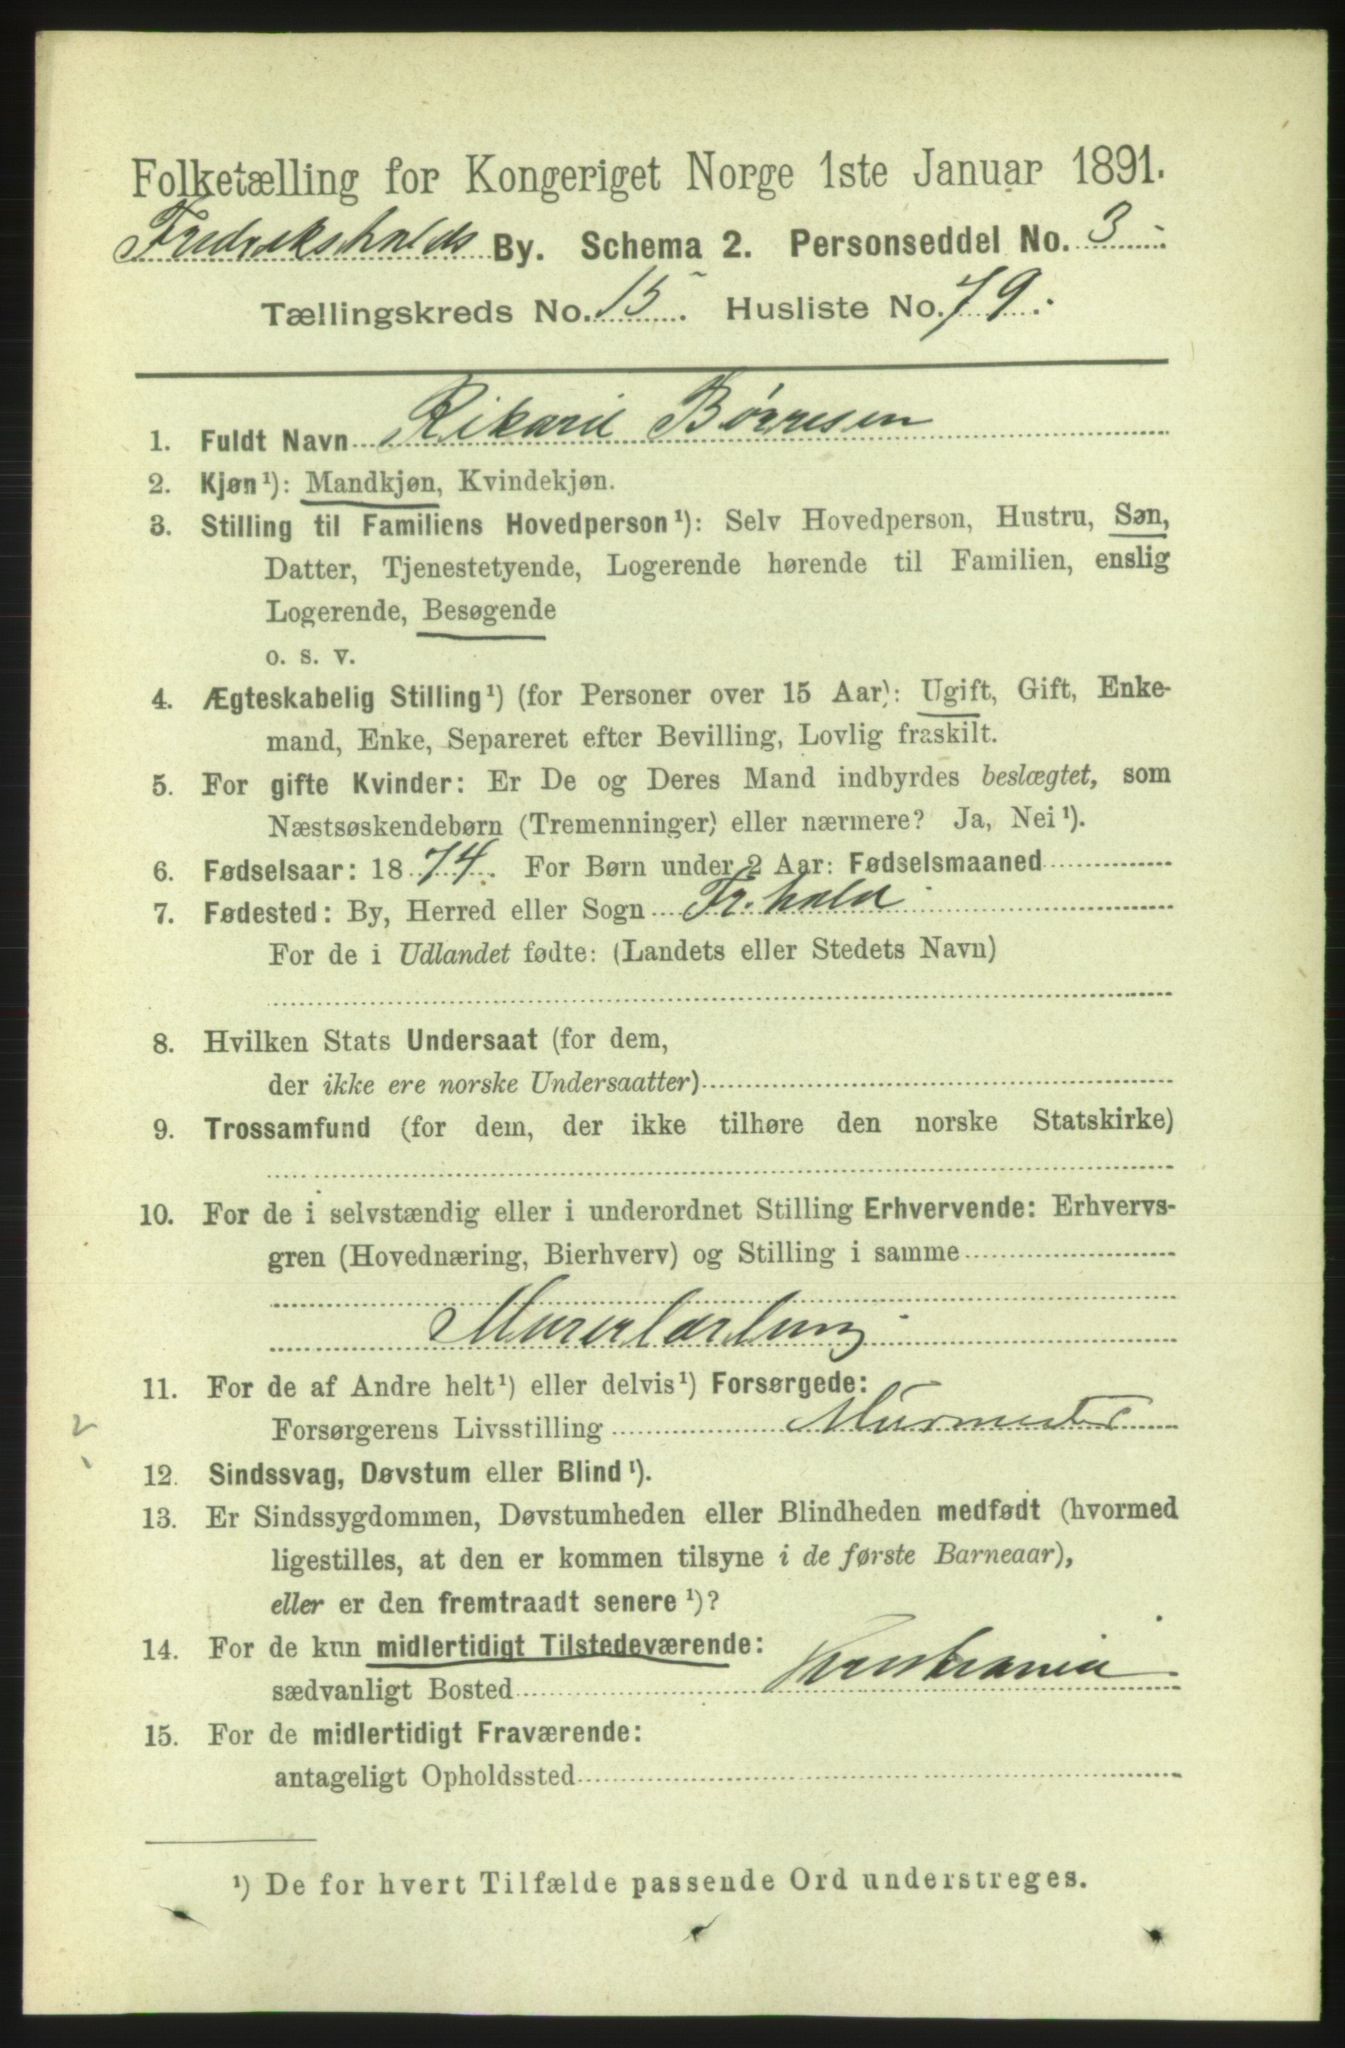 Folketælling for Kongeriget Norge 1ste Januar 1891.
Fredrikshalds By. Schema 2. Personseddel No. 3
Tællingskreds No. 15. Husliste No. 79.
1. Fuldt Navn Rikard Børresen
2. Kjøn¹): Mandkjøn, Kvindekjøn.
3. Stilling til Familiens Hovedperson¹): Selv Hovedperson, Hustru, Søn,
Datter, Tjenestetyende, Logerende hørende til Familien, enslig
Logerende, Besøgende
o. s. v.
4. Ægteskabelig Stilling¹) (for Personer over 15 Aar): Ugift, Gift, Enke-
mand, Enke, Separeret efter Bevilling, Lovlig fraskilt.
5. For gifte Kvinder: Er De og Deres Mand indbyrdes beslægtet, som
Næstsøskendebørn (Tremenninger) eller nærmere? Ja, Nei¹).
6. Fødselsaar: 1874. For Børn under 2 Aar: Fødselsmaaned
7. Fødested: By, Herred eller Sogn Fr.hald
For de i Udlandet fødte: (Landets eller Stedets Navn)
8. Hvilken Stats Undersaat (for dem,
der ikke ere norske Undersaatter)
9. Trossamfund (for dem, der ikke tilhøre den norske Statskirke)
10. For de i selvstændig eller i underordnet Stilling Erhvervende: Erhvervs-
gren (Hovednæring, Bierhverv) og Stilling i samme
Murerlærling
11. For de af Andre helt¹) eller delvis¹) Forsørgede:
Forsørgerens Livsstilling Murmester
2
12. Sindssvag, Døvstum eller Blind¹).
13. Er Sindssygdommen, Døvstumheden eller Blindheden medfødt (hvormed
ligestilles, at den er kommen tilsyne i de første Barneaar),
eller er den fremtraadt senere¹)?
14. For de kun midlertidigt Tilstedeværende:
sædvanligt Bosted Kristiania
15. For de midlertidigt Fraværende:
antageligt Opholdssted
¹) De for hvert Tilfælde passende Ord understreges.